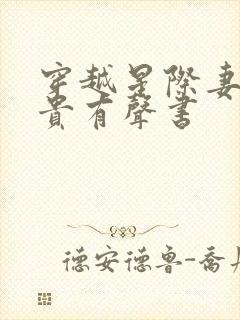 穿越星際妻
貴有聲書
德安德鲁-喬